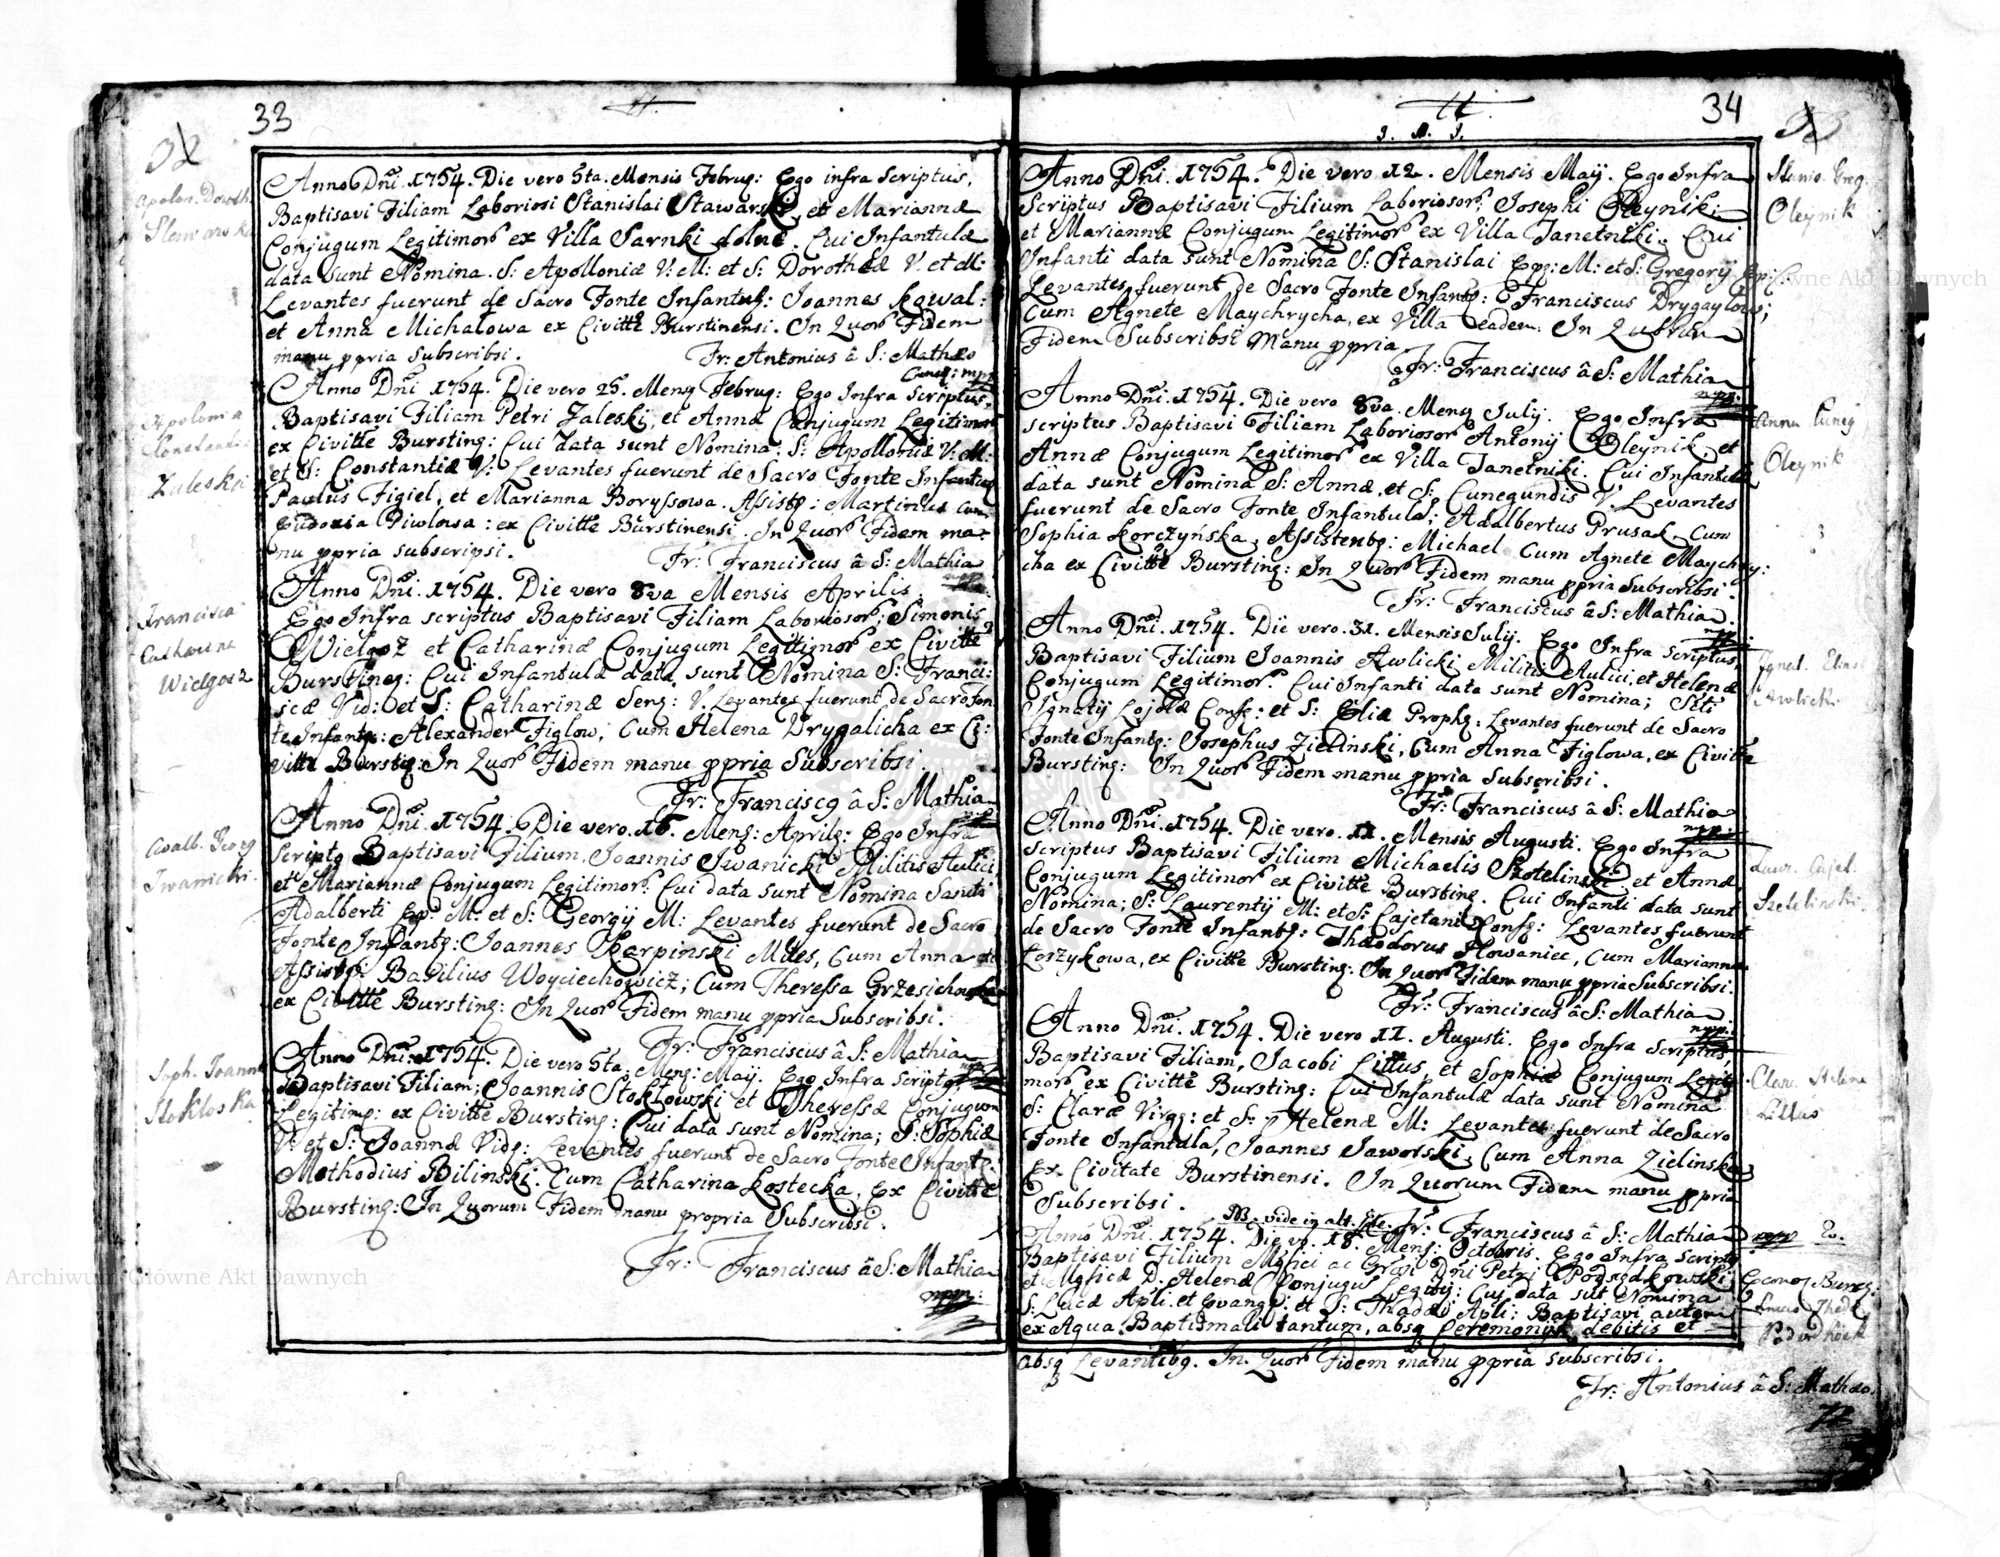 33
32
Apolon. Doroth.
Stawarski
Anno Dñi. 1754. Die vero 5ta. Mensis Februą: Ego infra Scriptus,
Baptisavi Filiam Laboriosi Stanislai Stawarski, et Mariannæ
Conjugum Legitimor ex Villa Sarnki dolne. Cui Infantulæ
data sunt Nomina. S: Apolloniæ V: M: et S: Dorotheæ V. et M:
Levantes fuerunt de Sacro Fonte Infantuł: Joannes Kowal:
et Anna Michałowa ex Civitte Burstinensi. In Quor Fidem
manu ppria Subscribsi.
Fr: Antonius â S: Mathæo
mpp
Apolonia
Constantia
Zaleski
Anno Dñi 1754. Die vero 25. Mens Februą: Ego Infra Scriptus,
Baptisavi Filiam Petri Zaleski, et Annæ Conjugum Legitimor
ex Civitte Bursting: Cui data sunt Nomina: S: Apolloniæ V: M:
et S: Constantiæ V: Levantes fuerunt de Sacro Fonte Infantuł
Paulus Figiel, et Marianna Boryssowa. Assistę: Martinus cum
Eudoxia Diwlowa: ex Civitte Burstinensi. In Quor Fidem ma-
nu ppria subscripsi.
Fr: Franciscus â S: Mathia
mpp
Francisca
Catharina
Wielgosz
Anno Dñi. 1754. Die vero 8va Mensis Aprilis.
Ego Infra scriptus Baptisavi Filiam Laboriosor; Simonis
Wielgoz et Catharinæ Conjugum Legitimor ex Civitte
Burstineg: Cui Infantulæ data sunt Nomina S: Franci:
sicæ Vid: et S: Catharinæ Seng: V. Levantes fuerunt de Sacro Fon
te Infantę: Alexander Figlow, Cum Helena Drygalicha ex Ci:
vitte Burstig: In Quor Fidem manu ppria Subscribsi.
Fr: Franciscą â S: Mathia
Adalb. Georg
Iwanicki.
Anno Dñi. 1754. Die vero. 16. Mensą: Aprilą: Ego Infra
Scriptą Baptisavi Filium, Joannis Iwanicki Militis Aulici,
et Mariannæ Conjugum Legitimor: Cui data sunt Nomina Sancti
Adalberti Ep: M: et S: Georgij M: Levantes fuerunt de Sacro
Fonte Infantą: Joannes Karpinski Miles, Cum Anna et
Assistęą: Basilius Woyciechowicz; Cum Theressa Grzesichowska
ex Civitte Bursting: In Quor Fidem manu ppria Subscribsi.
Fr: Franciscus â S: Mathia
mpp
Soph. Joanna
Stokloska
Anno Dñi: 1754. Die vero 5ta. Mensą: Maij. Ego Infra Scriptą
Baptisavi Filiam; Joannis Stokłowski et Theressæ Conjugum
Legitimą: ex Civitte Bursting: Cui data sunt Nomina; S: Sophiæ
V: et S: Joannæ Vidą: Levantes fuerunt de Sacro Fonte Infantą:
Methodius Bilinski. Cum Catharina Kostecka, Ex Civitte
Bursting: In Quorum Fidem manu propria Subscribsi.
Fr: Franciscus â S: Mathia
mpp:
34
33
J. M. J.
Stanis. Greg.
Oleynik
Anno Dñi. 1754. Die vero 12. Mensis Maij. Ego Infra
Scriptus Baptisavi Filium Laboriosor: Josephi Oleynik;
et Mariannæ Conjugum Legitimor ex Villa Janetniki. Cui
Infanti data sunt Nomina S: Stanislai Epą: M: et S: Gregorij Ep:
Levantes fuerunt de Sacro Fonte Infantą: Franciscus Drygaylow;
Cum Agnete Maychrycha, ex Villa eadem. In Quorum
Fidem Subscribsi Manu ppria
Fr: Franciscus â S: Mathia
mpp:
Anna Cuneg
Oleynik
Anno Dñi. 1754. Die vero 8va. Mensą July. Ego Infra
scriptus Baptisavi Filiam Laboriosor Antonij Oleynik, et
Annæ Conjugum Legitimor ex Villa Janetniki. Cui Infantulæ
data sunt Nomina S: Annæ, et S: Cunegundis V: Levantes
fuerunt de Sacro Fonte Infantula; Adalbertus Prusak Cum
Sophia Korczyńska, Assistentą: Michael Cum Agnete Maychry:
cha ex Civitte Bursting: In Quor Fidem manu ppria Subscribsi.
Fr: Franciscus â S: Mathia.
mpp
Ignat. Elias
Awlicki
Anno Dñi. 1754. Die vero. 31. Mensis July. Ego Infra Scriptus,
Baptisavi Filium Joannis Awlicki Militis Aulici, et Helenæ
Conjugum Legitimor: Cui Infanti data sunt Nomina; Sti:
Ignatij Lojolæ Conf: et S: Eliæ Prophą: Levantes fuerunt de Sacro
Fonte Infantą: Josephus Zielinski, Cum Anna Figlowa, ex Civitte
Bursting: In Quor Fidem manu ppria Subscribsi.
Fr: Franciscus â S: Mathia
mpp:
Laur. Cajet.
Szetelinski.
Anno Dñi. 1754. Die vero. 11. Mensis Augusti. Ego Infra
Scriptus Baptisavi Filium Michaelis Szotelinski et Annæ,
Conjugum Legitimor ex Civitte Bursting. Cui Infanti data sunt
Nomina; S: Laurentij M: et S: Cajetani Confą: Levantes fuerunt
de Sacro Fonte Infantą: Theodorus Słowaniec, Cum Marianna
Łoszykowa, ex Civitte Bursting: In Quor Fidem manu ppria Subscribsi.
Fr: Franciscus â S: Mathia.
mpp:
Clara. Helena
Littus
Anno Dñi. 1754. Die vero 11. Augusti. Ego Infra Scriptus,
Baptisavi Filiam, Jacobi Littus, et Sophiæ Conjugum Legiti
mor ex Civitte Bursting: Cui Infantulæ data sunt Nomina
S: Claræ Virgą: et S: Helenæ M: Levantes fuerunt de Sacro
Fonte Infantula, Joannes Jaworski, Cum Anna Zielinska
Ex Civitate Burstinensi. In Quorum Fidem manu ppria
Subscribsi.
NB. vide in alt. file. Fr: Franciscus â S: Mathia mpp
Anno Dñi. 1754. Die vo. 18. Mensą: Octobris. Ego Infra Scriptą
Baptisavi Filium Mgfici ac Grosi Dñi Petri Podsędkowski
et Mgficæ D. Helenæ Conjugu Legitij: Cuj data sut Nomina
S: Lucæ Apli. et Evangą: et S: Thaddæi Apli: Baptisavi autem
ex Aqua Baptismali tantum, absą Ceremonijs debitis et
absą Levantibą. In Quor Fidem manu ppria subscribsi.
Fr: Antonius â S: Mathæo.
Archiwum Główne Akt Dawnych
Archiwum Główne Akt Dawnych